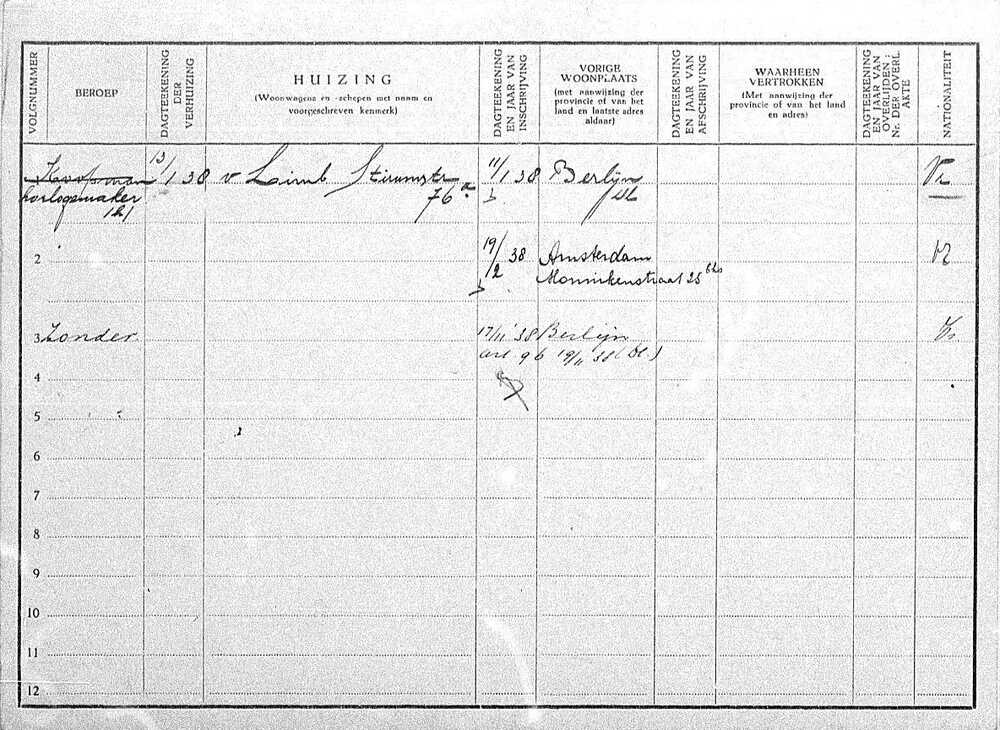 VOLGNUMMER
BEROEP
DAGTEEKENING DER VERHUIZING
HUIZING
(Woonwagens en -schepen met naam en
voorgeschreven kenmerk)
DAGTEEKENING EN JAAR VAN INSCHRIJVING
VORIGE
WOONPLAATS
(met aanwijzing der
provincie of van het
land en laatste adres
aldaar)
DAGTEEKENING EN JAAR VAN AFSCHRIJVING
WAARHEEN
VERTROKKEN
(Met aanwijzing der
provincie of van het land
en adres)
DAGTEEKENING EN JAAR VAN OVERLIJDEN; Nr. DER OVERL. AKTE
NATIONALITEIT
Koopman 13/1 38 v Limb Stirumstr 11/1 38 Berlijn
horlogemaker 76a
2 19/2 38 Amsterdam
Monnikenstraat 25 bhs
3 Zonder 17/11 '38 Berlijn
art 9b 19/11 38
4
5
6
7
8
9
10
11
12